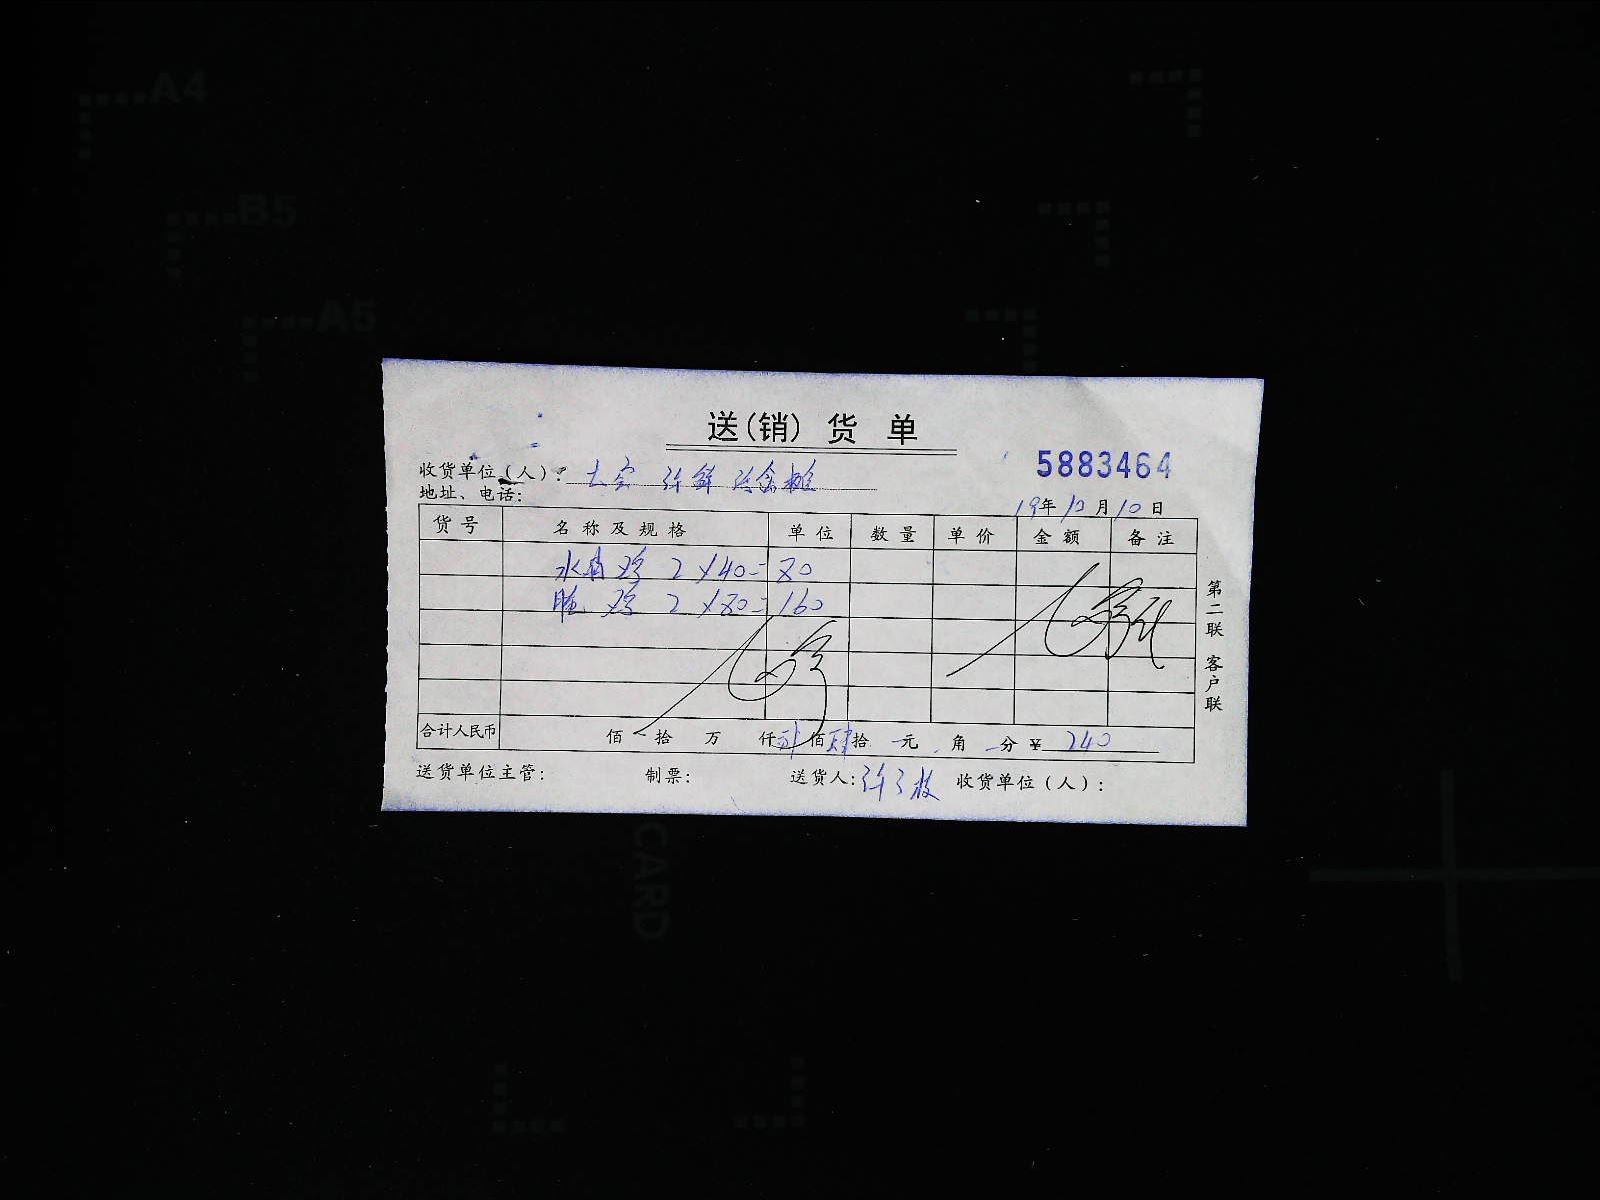 A4
B5
A5
送(销)货单
5883464
收货单位(人):
地址、电话:
19年10月10日
货号 名称及规格 单位 数量 单价 金额 备注
鸡 2×40=80
鸡 2×80=160
合计人民币 佰 拾 万 仟贰佰肆拾 元 角 分 ¥ 240
送货单位主管: 制票: 送货人: 收货单位(人):
第二联 客户联
CARD